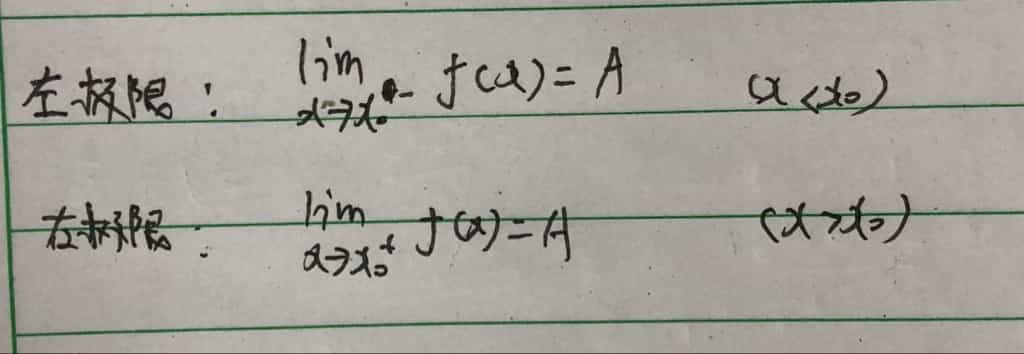 左极限: lim x→x₀⁻ f(x)=A (x<x₀)
右极限: lim x→x₀⁺ f(x)=A (x>x₀)